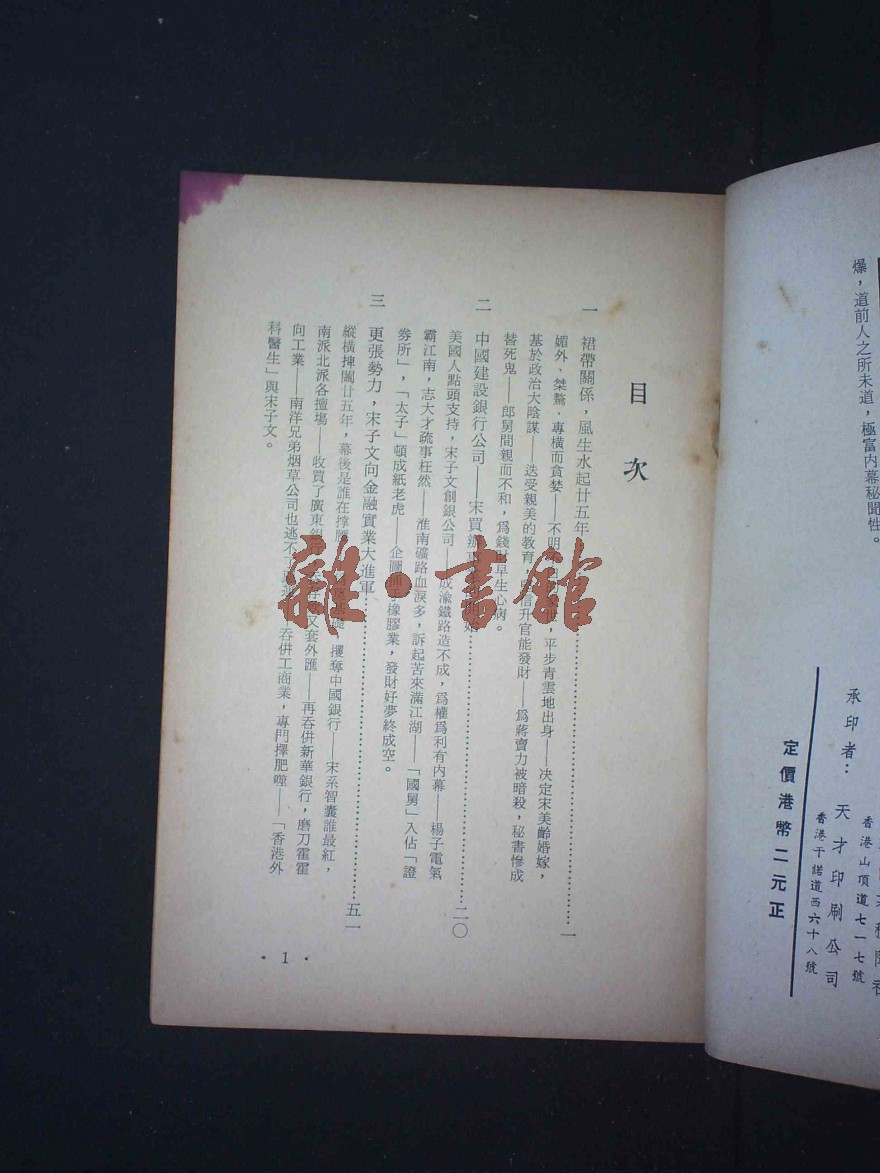 爆，道前人之所未道，極富內幕秘聞性。
承印者：天才印刷公司
香港干諾道西六十八號
香港山頂道七一七號
定價港幣二元正
目次
一 裙帶關係，風生水起廿五年……一
媚外、桀驁、專橫而貪婪——不明 平步青雲地出身——决定宋美齡婚嫁，
基於政治大陰謀——送受親美的教育， 升官能發財——爲蔣賣力被暗殺，秘書慘成
替死鬼——郎舅間親而不和，爲錢財早生心病。
二 中國建設銀行公司——宋買辦 開始……二〇
美國人點頭支持，宋子文創銀公司——成渝鐵路造不成，爲權爲利有內幕——楊子電氣
霸江南，志大才疏事枉然——淮南礦路血淚多，訴起苦來滿江湖——「國舅」入佔「證
券所」，「太子」頓成紙老虎——企圖 手橡膠業，發財好夢終成空。
三 更張勢力，宋子文向金融實業大進軍……五一
縱橫捭闔廿五年，幕後是誰在撑腰 攫奪中國銀行——宋系智囊誰最紅，
南派北派各擅塲——收買了廣東銀行， 又套外匯——再吞併新華銀行，磨刀霍霍
向工業——南洋兄弟烟草公司也逃不 吞併工商業，專門擇肥噬——「香港外
科醫生」與宋子文。
· 1 ·
雜·書館